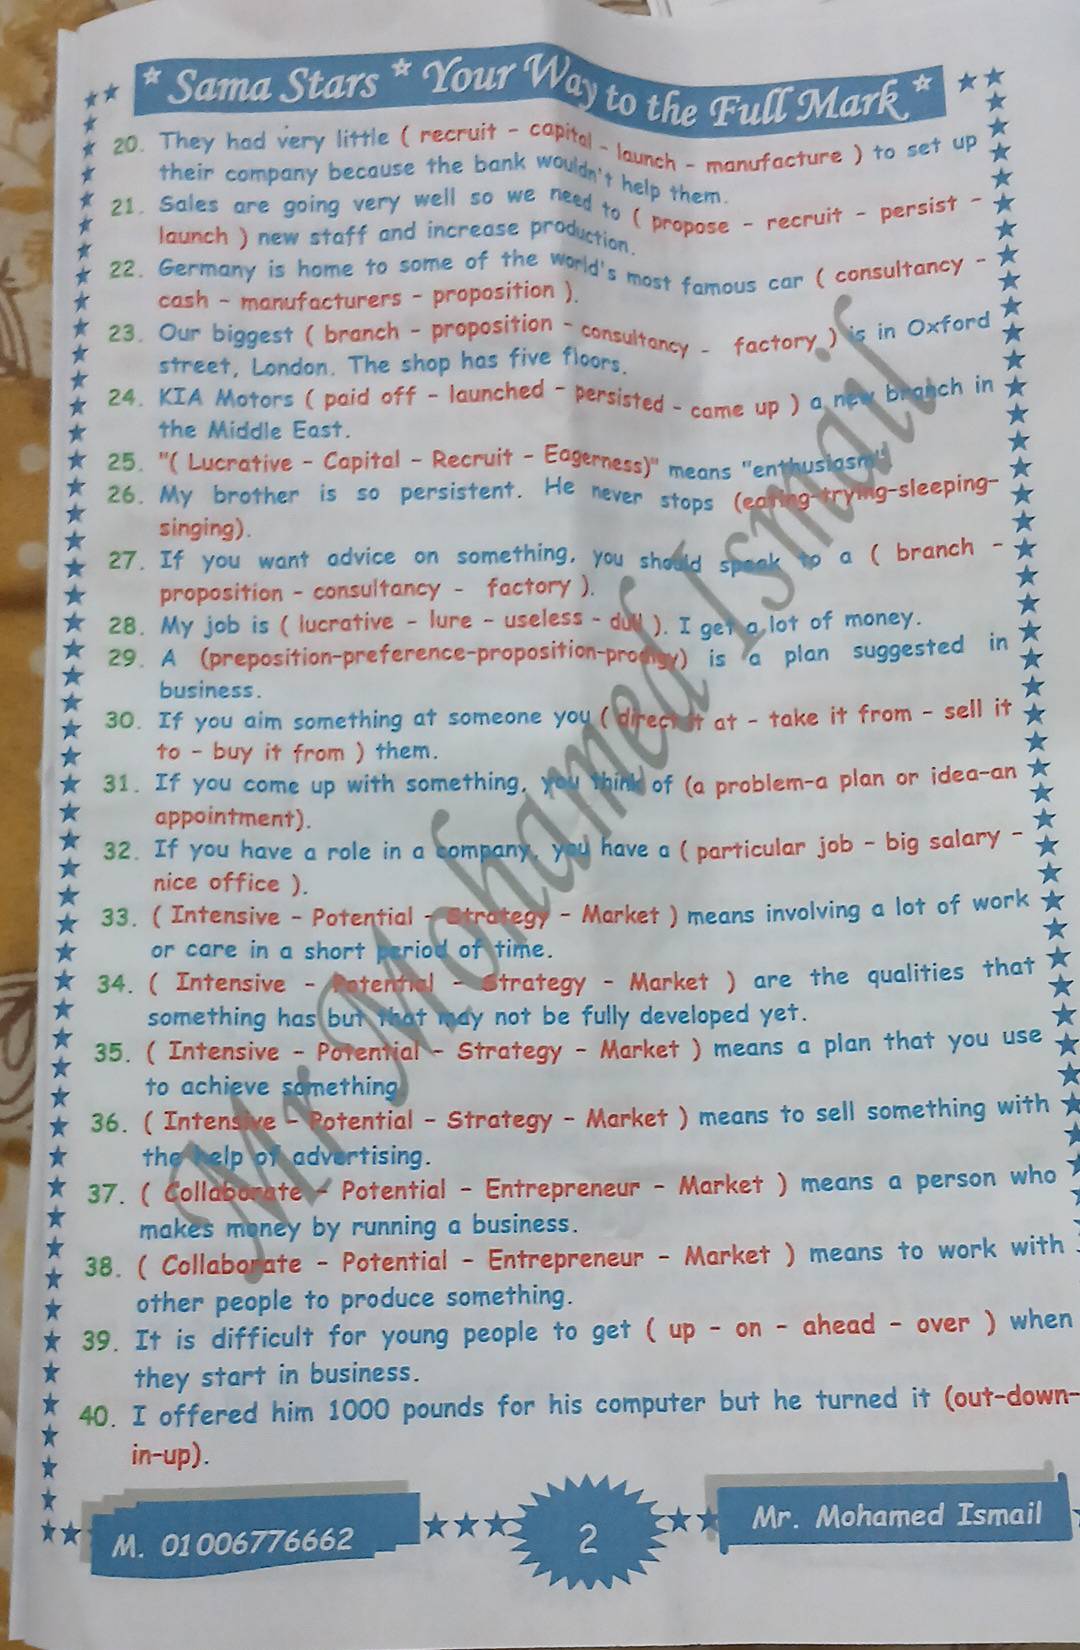 * Sama Stars * Your Way to the Full Mark *
20. They had very little ( recruit - capital - launch - manufacture ) to set up
their company because the bank wouldn't help them.
21. Sales are going very well so we need to ( propose - recruit - persist -
launch ) new staff and increase production.
22. Germany is home to some of the world's most famous car ( consultancy -
cash - manufacturers - proposition ).
23. Our biggest ( branch - proposition - consultancy - factory ) is in Oxford
street, London. The shop has five floors.
24. KIA Motors ( paid off - launched - persisted - came up ) a new branch in
the Middle East.
25. "( Lucrative - Capital - Recruit - Eagerness)" means "enthusiasm"
26. My brother is so persistent. He never stops (eating-trying-sleeping-
singing).
27. If you want advice on something, you should speak to a ( branch -
proposition - consultancy - factory ).
28. My job is ( lucrative - lure - useless - dull ). I get a lot of money.
29. A (preposition-preference-proposition-prodigy) is a plan suggested in
business.
30. If you aim something at someone you ( direct it at - take it from - sell it
to - buy it from ) them.
31. If you come up with something, you think of (a problem-a plan or idea-an
appointment).
32. If you have a role in a company, you have a ( particular job - big salary -
nice office ).
33. ( Intensive - Potential - Strategy - Market ) means involving a lot of work
or care in a short period of time.
34. ( Intensive - Potential - Strategy - Market ) are the qualities that
something has but that may not be fully developed yet.
35. ( Intensive - Potential - Strategy - Market ) means a plan that you use
to achieve something
36. ( Intensive - Potential - Strategy - Market ) means to sell something with
the help of advertising.
37. ( Collaborate - Potential - Entrepreneur - Market ) means a person who
makes money by running a business.
38. ( Collaborate - Potential - Entrepreneur - Market ) means to work with
other people to produce something.
39. It is difficult for young people to get ( up - on - ahead - over ) when
they start in business.
40. I offered him 1000 pounds for his computer but he turned it (out-down-
in-up).
Mr Mohamed Ismail
M. 01006776662
2
Mr. Mohamed Ismail